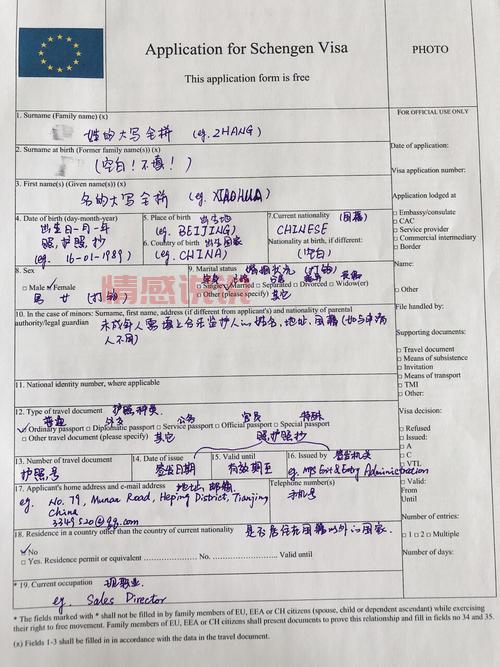 Application for Schengen Visa
This application form is free
PHOTO
1. Surname (Family name) (x)
姓的大写全拼 (eg. ZHANG)
2. Surname at birth (Former family name(s)) (x)
(空白！不填！)
3. First name(s) (Given name(s)) (x)
名的大写全拼 (eg. XIAOHUA)
4. Date of birth (day-month-year)
出生日-月-年
照护照抄
(eg. 16-01-1989)
5. Place of birth 出生地
(eg. BEIJING)
6. Country of birth 出生国家
(eg. CHINA)
7. Current nationality (国籍)
CHINESE
Nationality at birth, if different:
(空白)
8. Sex
□ Male ✓ Female
男 女 (打钩)
9. Marital status 婚姻状况 (打钩)
单身 已婚 分居 离异 丧偶
□ Single ✓ Married □ Separated □ Divorced □ Widow(er)
□ Other (please specify) 其它
情感说说
10. In the case of minors: Surname, first name, address (if different from applicant's) and nationality of parental
authority/legal guardian 未成年人需填上合法监护人的姓名,地址,国籍(如与申请
人不同)
11. National identity number, where applicable
12. Type of travel document 护照种类
普通 外交 公务 官员 特殊
✓ Ordinary passport □ Diplomatic passport □ Service passport □ Official passport □ Special passport
□ Other travel document (please specify) 其它
照护照抄
13. Number of travel document
护照号
14. Date of issue
签发日期
15. Valid until
有效期至
16. Issued by 签发机关
eg. MPS Exit & Entry Administration
17. Applicant's home address and e-mail address 地址,邮箱
eg. No. 79, Munan Road, Heping District, Tianjing
China
3349520@qq.com
Telephone number(s)
手机号
18. Residence in a country other than the country of current nationality 是否居住在国籍以外的国家.
✓ No
□ Yes. Residence permit or equivalent .................. No. .................. Valid until
* 19. Current occupation 现职业.
eg. Sales Director
* The fields marked with * shall not be filled in by family members of EU, EEA or CH citizens (spouse, child or dependent ascendant) while exercising
their right to free movement. Family members of EU, EEA or CH citizens shall present documents to prove this relationship and fill in fields no 34 and 35.
(x) Fields 1-3 shall be filled in in accordance with the data in the travel document.
FOR OFFICIAL USE ONLY
Date of application:
Visa application number:
Application lodged at
□ Embassy/consulate
□ CAC
□ Service provider
□ Commercial intermediary
□ Border
Name:
□ Other
File handled by:
Supporting documents:
□ Travel document
□ Means of subsistence
□ Invitation
□ Means of transport
□ TMI
□ Other:
Visa decision:
□ Refused
□ Issued:
□ A
□ C
□ VTL
□ Valid:
From
Until
Number of entries:
□ 1 □ 2 □ Multiple
Number of days: